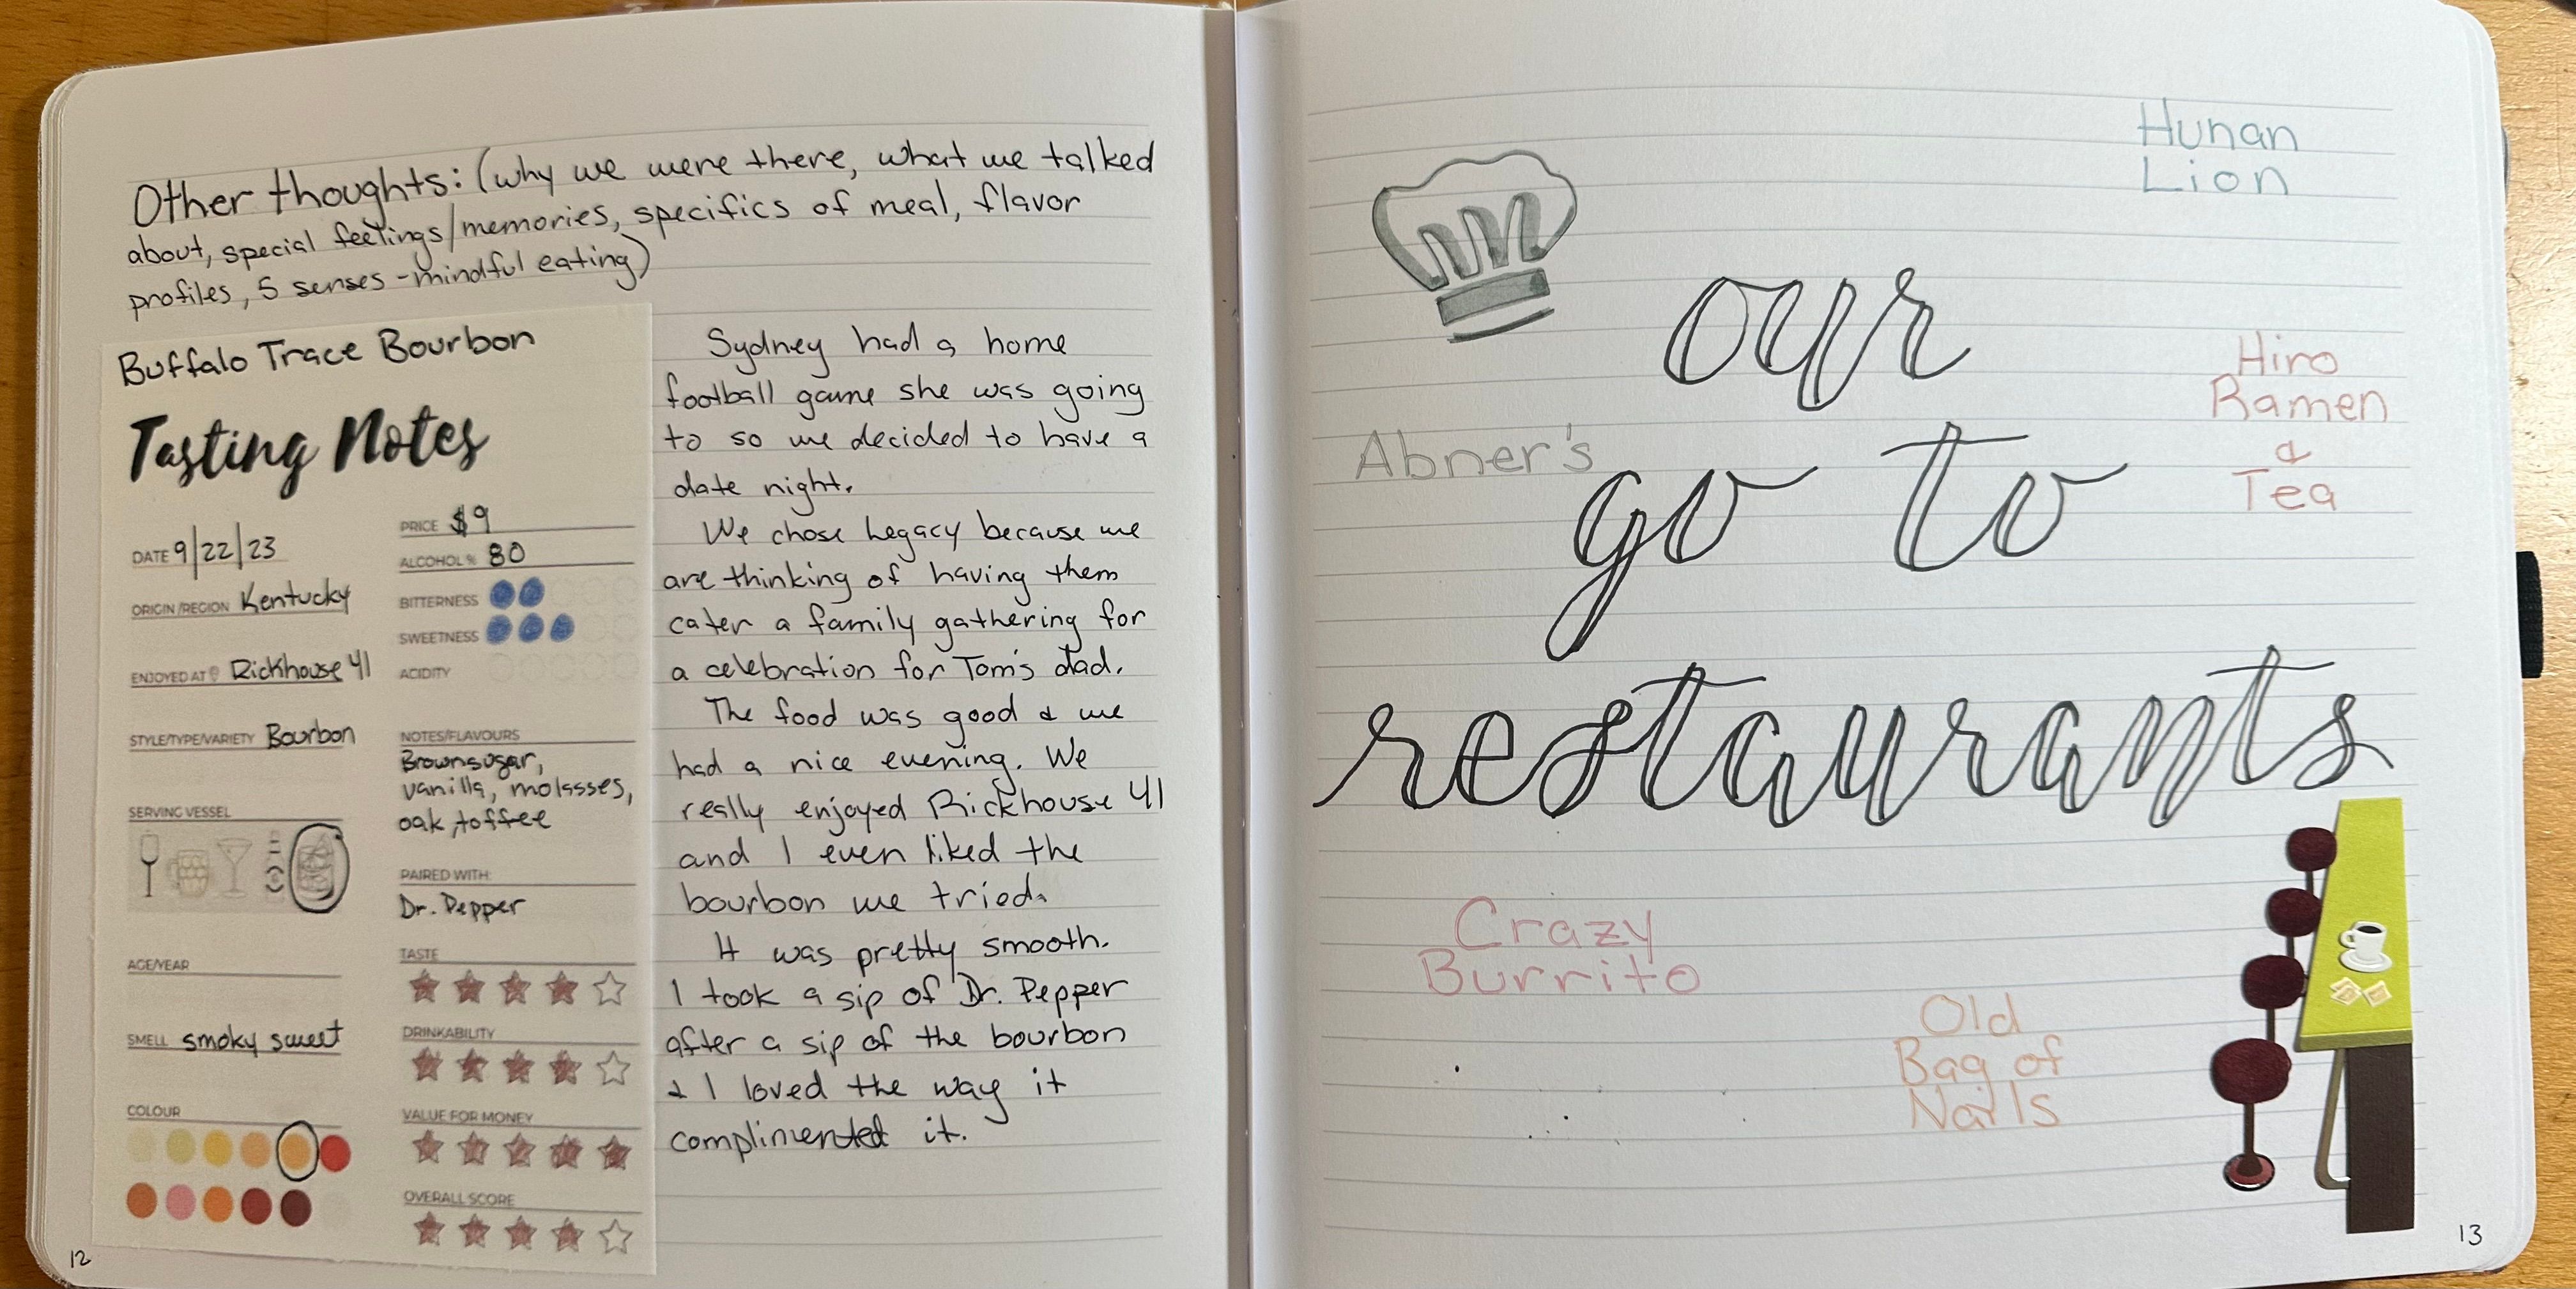 Other thoughts: (why we were there, what we talked
about, special feelings/memories, specifics of meal, flavor
profiles, 5 senses - mindful eating)
Buffalo Trace Bourbon
Tasting Notes
DATE 9/22/23
ORIGIN/REGION Kentucky
ENJOYED AT Rickhouse 41
STYLE/TYPE/VARIETY Bourbon
SERVING VESSEL
AGE/YEAR
SMELL smoky sweet
COLOUR
PRICE $9
ALCOHOL % 80
BITTERNESS
SWEETNESS
ACIDITY
NOTES/FLAVOURS
Brownsugar,
vanilla, molasses,
oak, toffee
PAIRED WITH:
Dr. Pepper
TASTE
DRINKABILITY
VALUE FOR MONEY
OVERALL SCORE
Sydney had a home
football game she was going
to so we decided to have a
date night.
We chose Legacy because we
are thinking of having them
cater a family gathering for
a celebration for Tom's dad.
The food was good & we
had a nice evening. We
really enjoyed Rickhouse 41
and I even liked the
bourbon we tried.
It was pretty smooth.
I took a sip of Dr. Pepper
after a sip of the bourbon
& I loved the way it
complimented it.
12
Hunan
Lion
our
Hiro
Ramen
&
Tea
Abner's
go to
restaurants
Crazy
Burrito
Old
Bag of
Nails
13